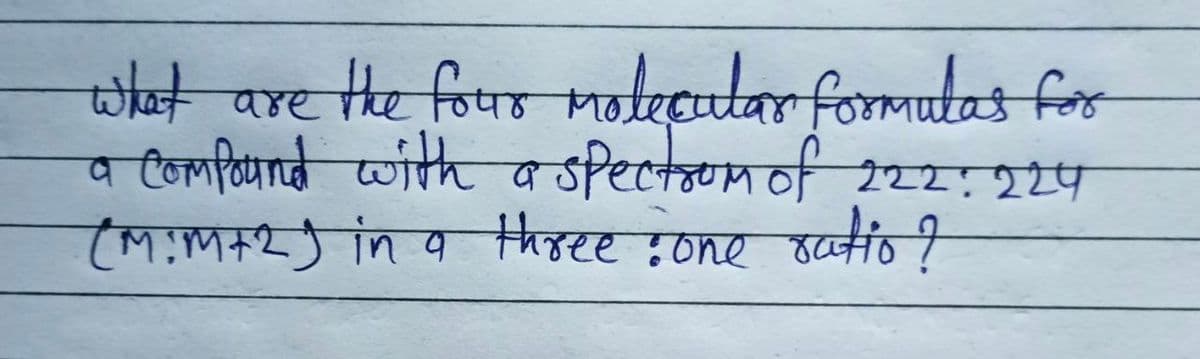 What are the four Molecular formulas for
a Compound with a spectrum of 222:224
(M:M+2) in a three :one ratio?